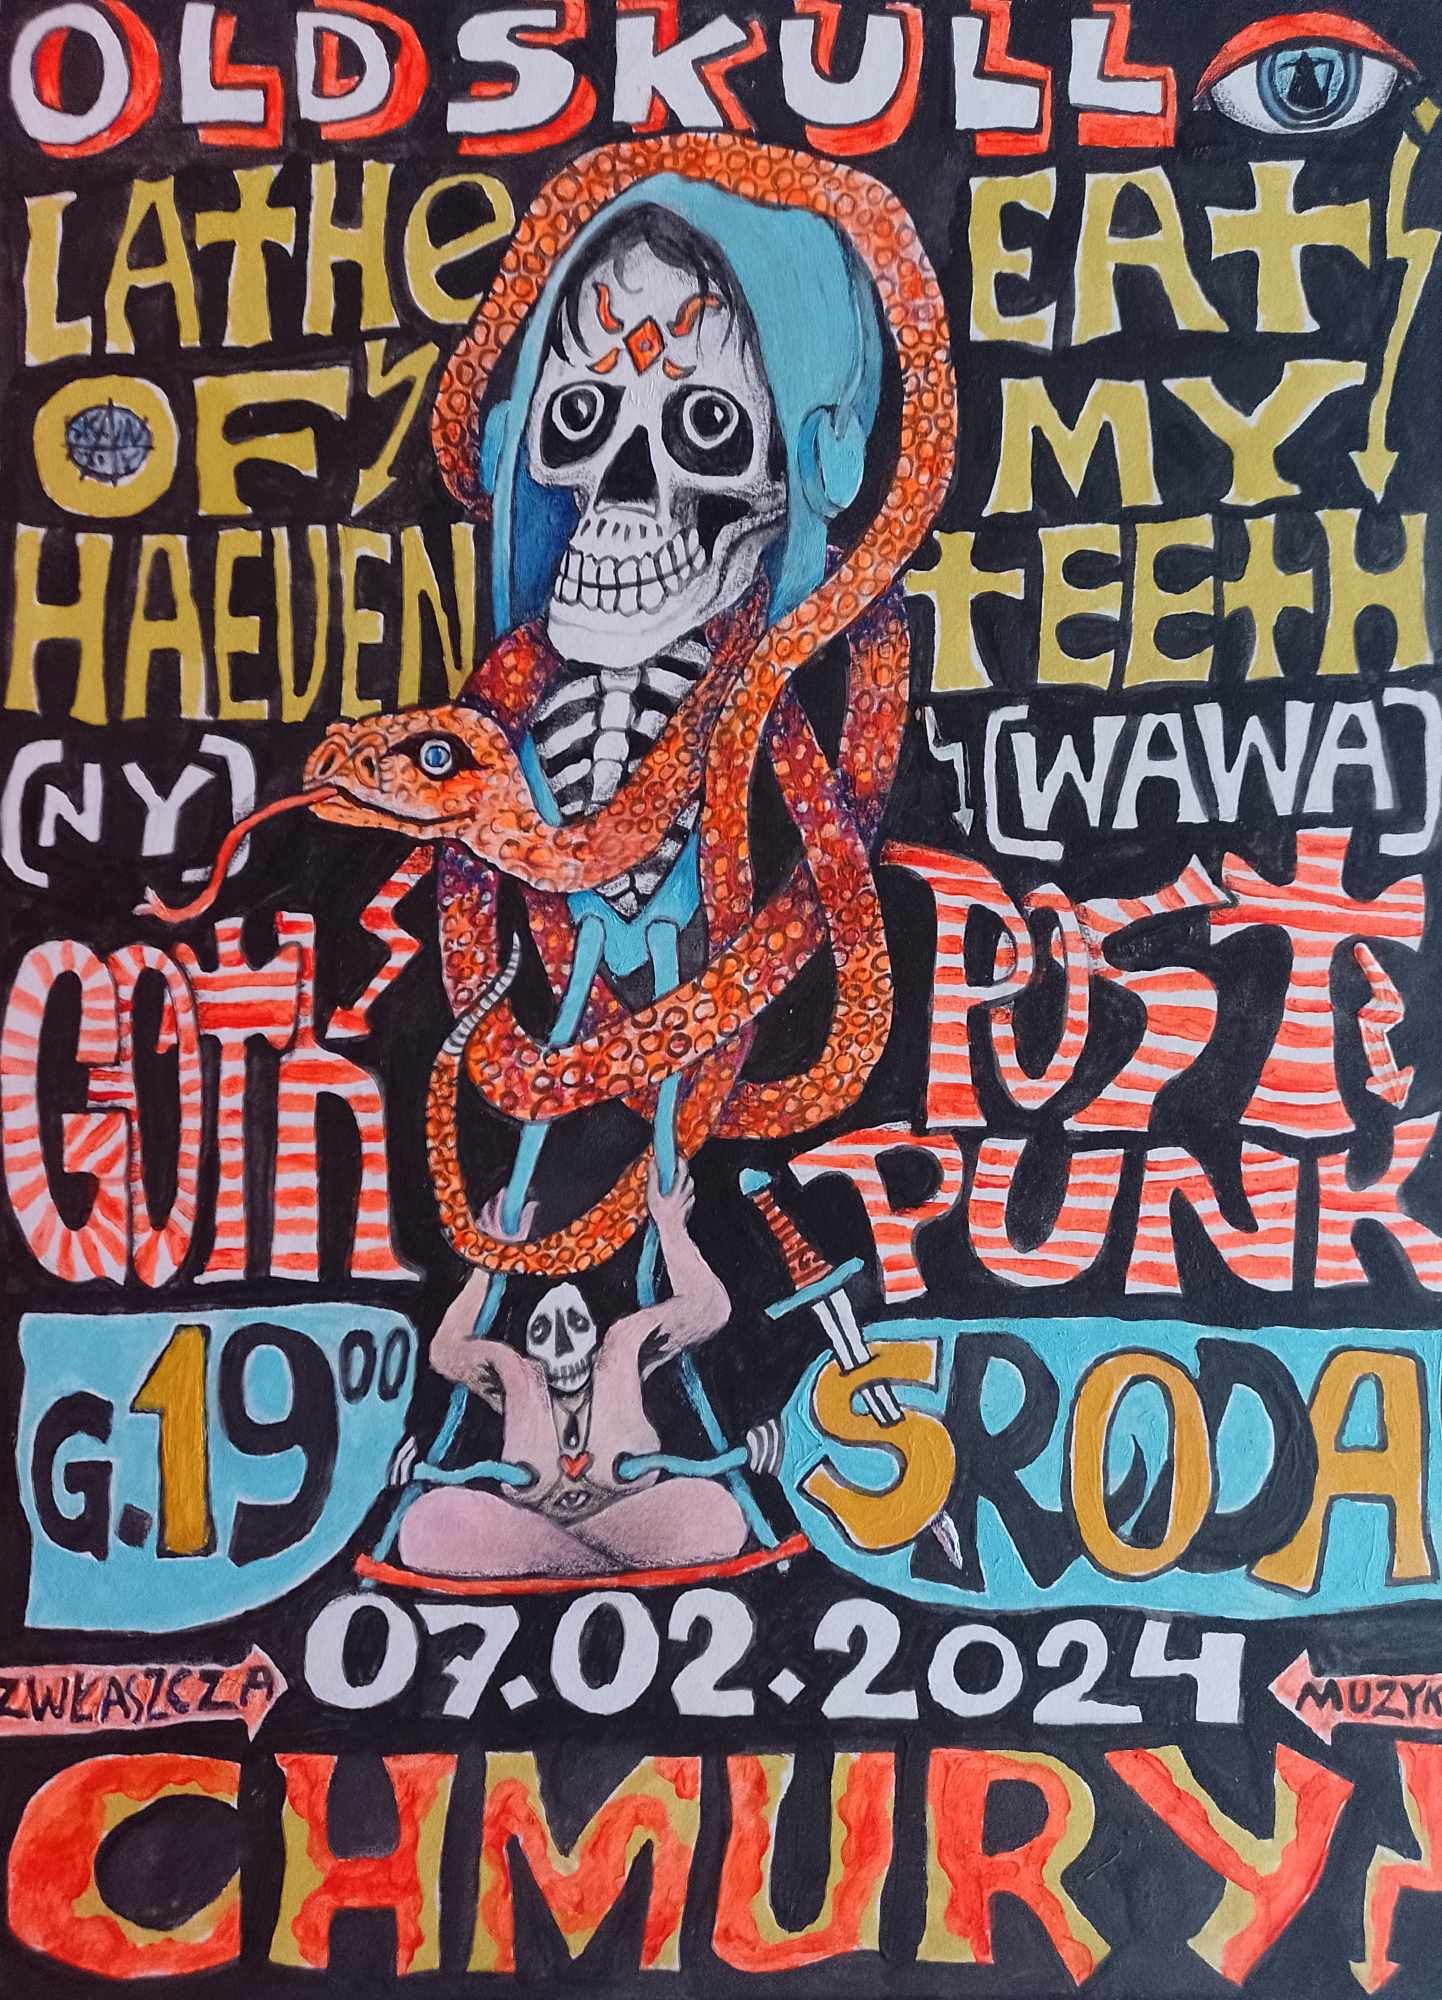 OLD SKULL
LATHE
OF
HAEVEN
(NY)
EAT
MY
TEETH
(WAWA)
GOTH
POST
PUNK
G.19⁰⁰
ŚRODA
07.02.2024
ZWŁASZCZA
MUZYK
CHMURY!